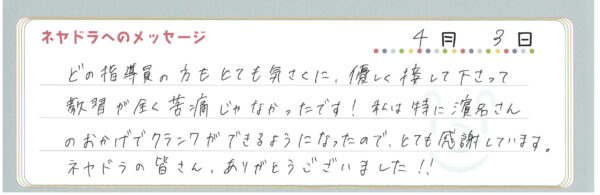 ネヤドラへのメッセージ 4月 3日
どの指導員の方もとても気さくに、優しく接して下さって
教習が全く苦痛じゃなかったです！私は特に濱名さん
のおかげでクランクができるようになったので、とても感謝しています。
ネヤドラの皆さん、ありがとうございました!!